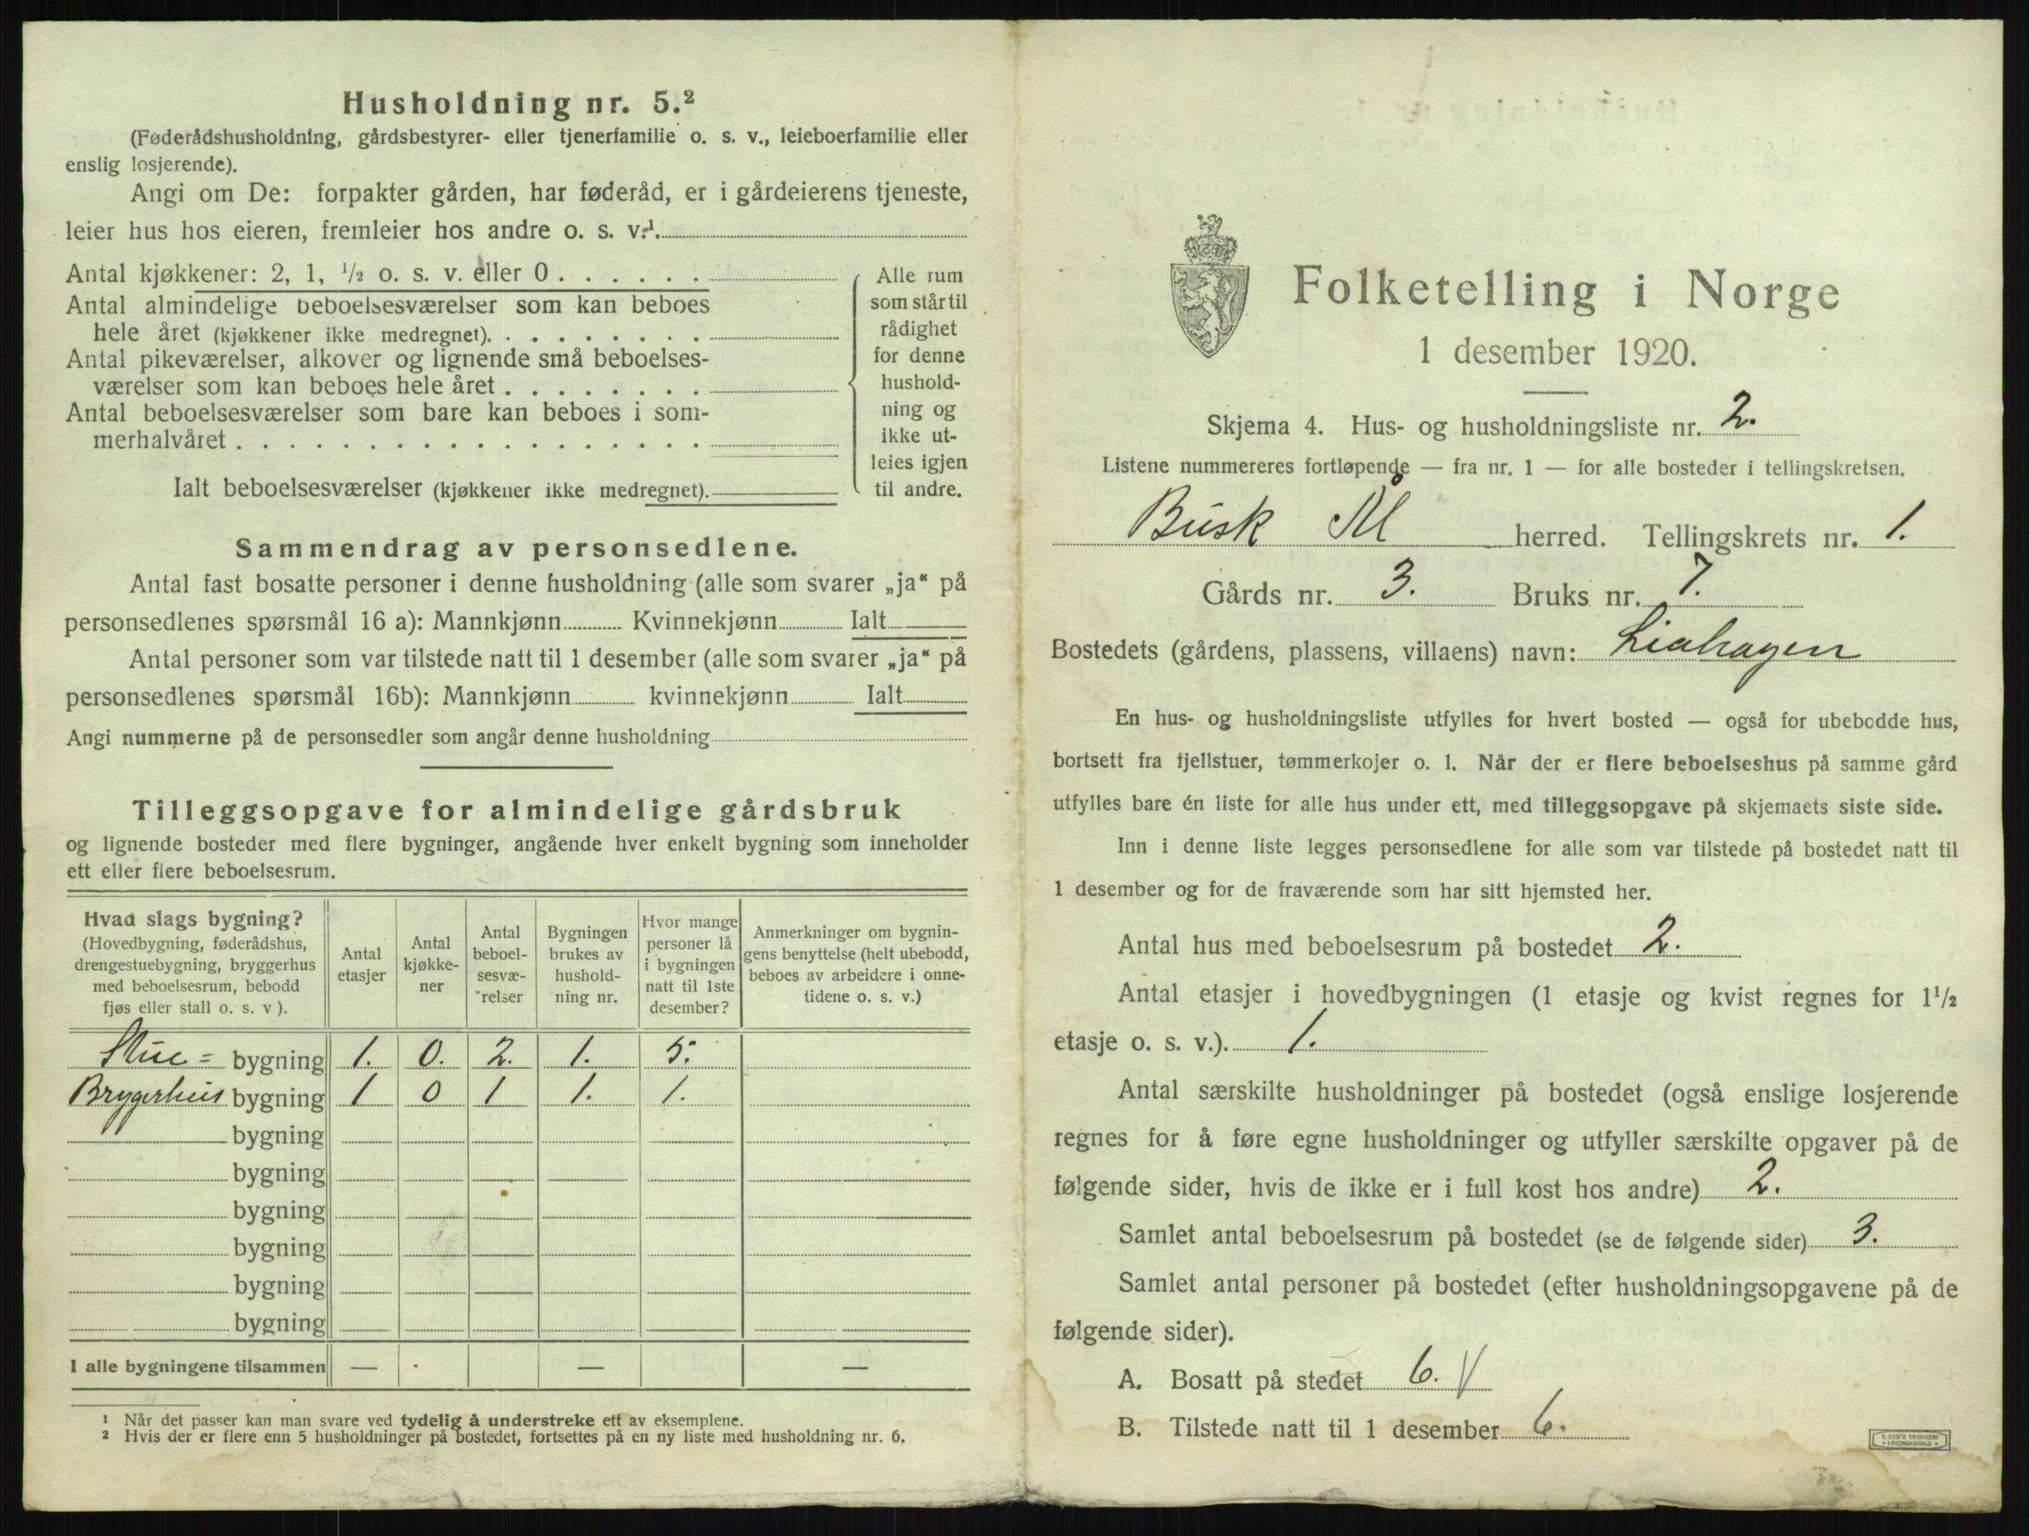 Husholdning nr. 5.²
(Føderådshusholdning, gårdsbestyrer- eller tjenerfamilie o. s. v., leieboerfamilie eller
enslig losjerende).
Angi om De: forpakter gården, har føderåd, er i gårdeierens tjeneste,
leier hus hos eieren, fremleier hos andre o. s. v.¹
Antal kjøkkener: 2, 1, ½ o. s. v. eller 0 . . . . . .
Antal almindelige beboelsesværelser som kan beboes
hele året (kjøkkener ikke medregnet). . . . . . . . .
Antal pikeværelser, alkover og lignende små beboelses-
værelser som kan beboes hele året . . . . . . . .
Antal beboelsesværelser som bare kan beboes i som-
merhalvåret . . . . . . . . . . . . . . . . . .
Ialt beboelsesværelser (kjøkkener ikke medregnet).
Alle rum
som står til
rådighet
for denne
hushold-
ning og
ikke ut-
leies igjen
til andre.
Sammendrag av personsedlene.
Antal fast bosatte personer i denne husholdning (alle som svarer „ja“ på
personsedlenes spørsmål 16 a): Mannkjønn Kvinnekjønn Ialt
Antal personer som var tilstede natt til 1 desember (alle som svarer „ja“ på
personsedlenes spørsmål 16b): Mannkjønn kvinnekjønn Ialt
Angi nummerne på de personsedler som angår denne husholdning
Tilleggsopgave for almindelige gårdsbruk
og lignende bosteder med flere bygninger, angående hver enkelt bygning som inneholder
ett eller flere beboelsesrum.
Hvad slags bygning?
(Hovedbygning, føderådshus,
drengestuebygning, bryggerhus
med beboelsesrum, bebodd
fjøs eller stall o. s. v ).
Antal
etasjer
Antal
kjøkke-
ner
Antal
beboel-
sesvæ-
relser
Bygningen
brukes av
hushold-
ning nr.
Hvor mange
personer lå
i bygningen
natt til 1ste
desember?
Anmerkninger om bygnin-
gens benyttelse (helt ubebodd,
beboes av arbeidere i onne-
tidene o. s. v.)
Stue= bygning 1. 0. 2. 1. 5.
Brygerhus bygning 1 0 1 1. 1.
bygning
bygning
bygning
bygning
bygning
bygning
I alle bygningene tilsammen — — —
¹ Når det passer kan man svare ved tydelig å understreke ett av eksemplene.
² Hvis der er flere enn 5 husholdninger på bostedet, fortsettes på en ny liste med husholdning nr. 6.
Folketelling i Norge
1 desember 1920.
Skjema 4. Hus- og husholdningsliste nr. 2.
Listene nummereres fortløpende — fra nr. 1 — for alle bosteder i tellingskretsen.
Busk Ål herred. Tellingskrets nr. 1.
Gårds nr. 3. Bruks nr. 7.
Bostedets (gårdens, plassens, villaens) navn: Liahagen
En hus- og husholdningsliste utfylles for hvert bosted — også for ubebodde hus,
bortsett fra fjellstuer, tømmerkojer o. l. Når der er flere beboelseshus på samme gård
utfylles bare én liste for alle hus under ett, med tilleggsopgave på skjemaets siste side.
Inn i denne liste legges personsedlene for alle som var tilstede på bostedet natt til
1 desember og for de fraværende som har sitt hjemsted her.
Antal hus med beboelsesrum på bostedet 2.
Antal etasjer i hovedbygningen (1 etasje og kvist regnes for 1½
etasje o. s. v.). 1.
Antal særskilte husholdninger på bostedet (også enslige losjerende
regnes for å føre egne husholdninger og utfyller særskilte opgaver på de
følgende sider, hvis de ikke er i full kost hos andre) 2.
Samlet antal beboelsesrum på bostedet (se de følgende sider) 3.
Samlet antal personer på bostedet (efter husholdningsopgavene på de
følgende sider).
A. Bosatt på stedet 6. V
B. Tilstede natt til 1 desember 6.